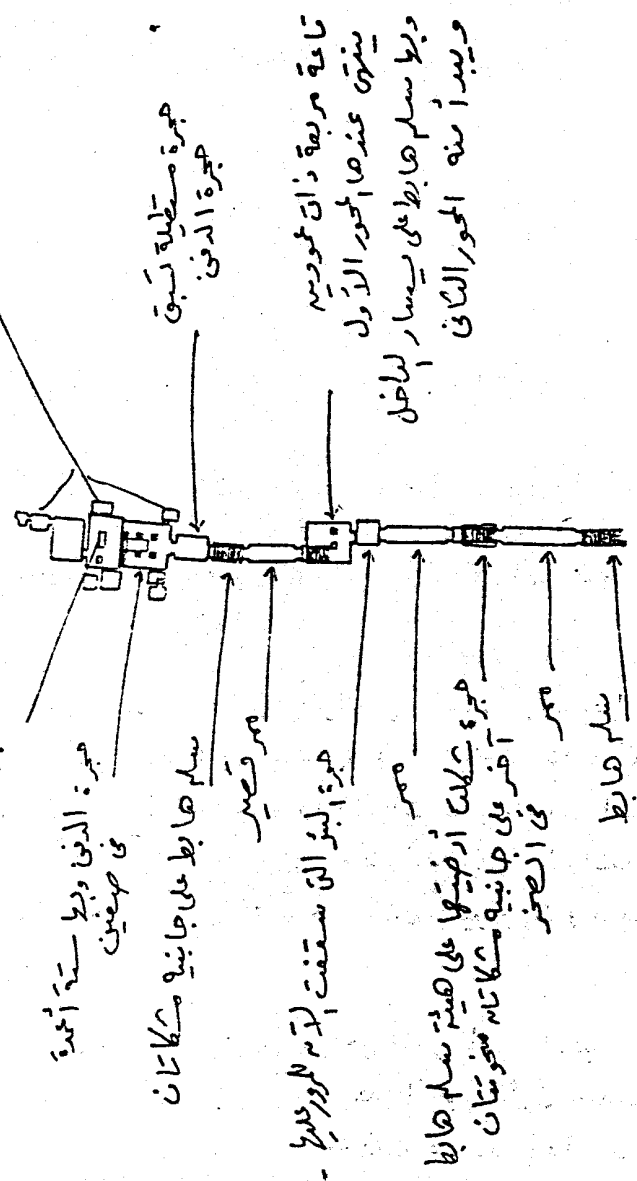 حجرة مستطيلة تسبق
حجرة الدفن
قاعة مربعة ذات عمودين
ينتهى عندها المحور الأول
وبها سلم هابط على يسار الداخل
ويبدأ منه المحور الثانى
حجرة الدفن وبها ستة أعمدة
فى صفين
سلم هابط على جانبيه مشكاتان
ممر قصير
حجرة البئر التى سقفت الآن للمرور عليها -
ممر
حجرة شكلت أرضيتها على هيئة سلم هابط
آخر على جانبيه مشكاتان منحوتتان
فى الصخر
ممر
سلم هابط